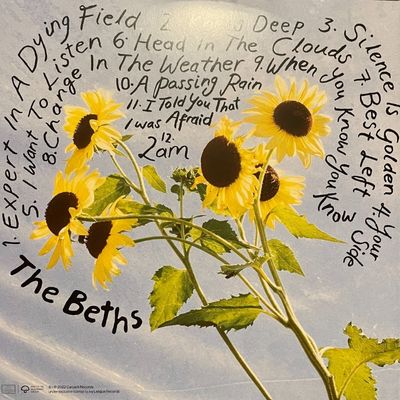 1. Expert In A Dying Field 2 Deep 3. Silence Is Golden 4. Your Side
5. I Want To Listen 6. Head In The Clouds 7. Best Left
8. Change In The Weather 9. When You Know You Know
10. A Passing Rain
11. I Told You That
I was Afraid
12.
2am
The Beths
2022 Carpark Records
under exclusive license to Ivy League Records